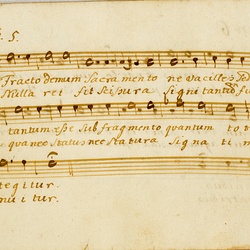 5.
Fracto demum Sacramento ne vacilles sed
Nulla rei fit scisura signi tantum fu
tantum esse sub fragmento quantum to
qua nec status nec statura signati
tegitur.
nuitur.